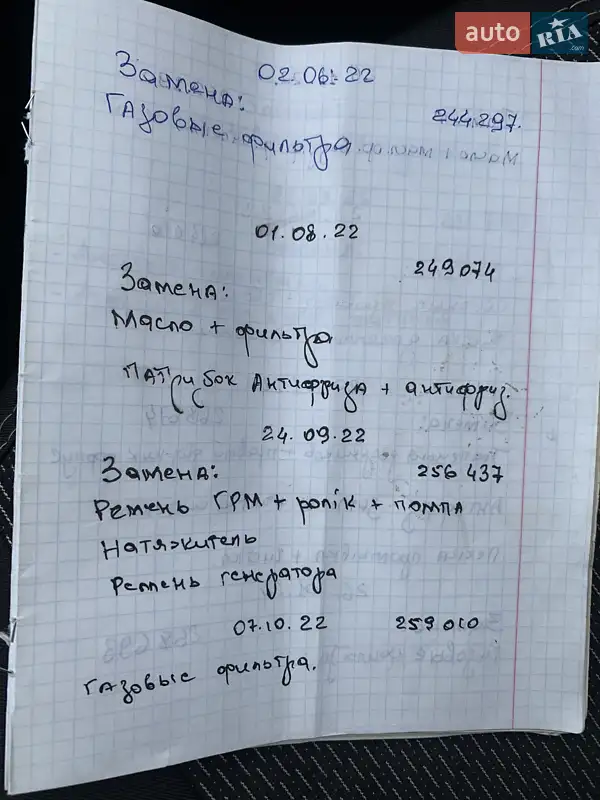 auto RIA .com
02.06.22
Замена:
244.297.
Газовые фильтра
01.08.22
249074
Замена:
Масло + фильтра
Патрибок Антифриза + антифриз.
24.09.22
Замена:
256 437
Ремень ГРМ + ролік + помпа
Натяжитель
Ремень генератора
07.10.22
259 010
газовые фильтра.